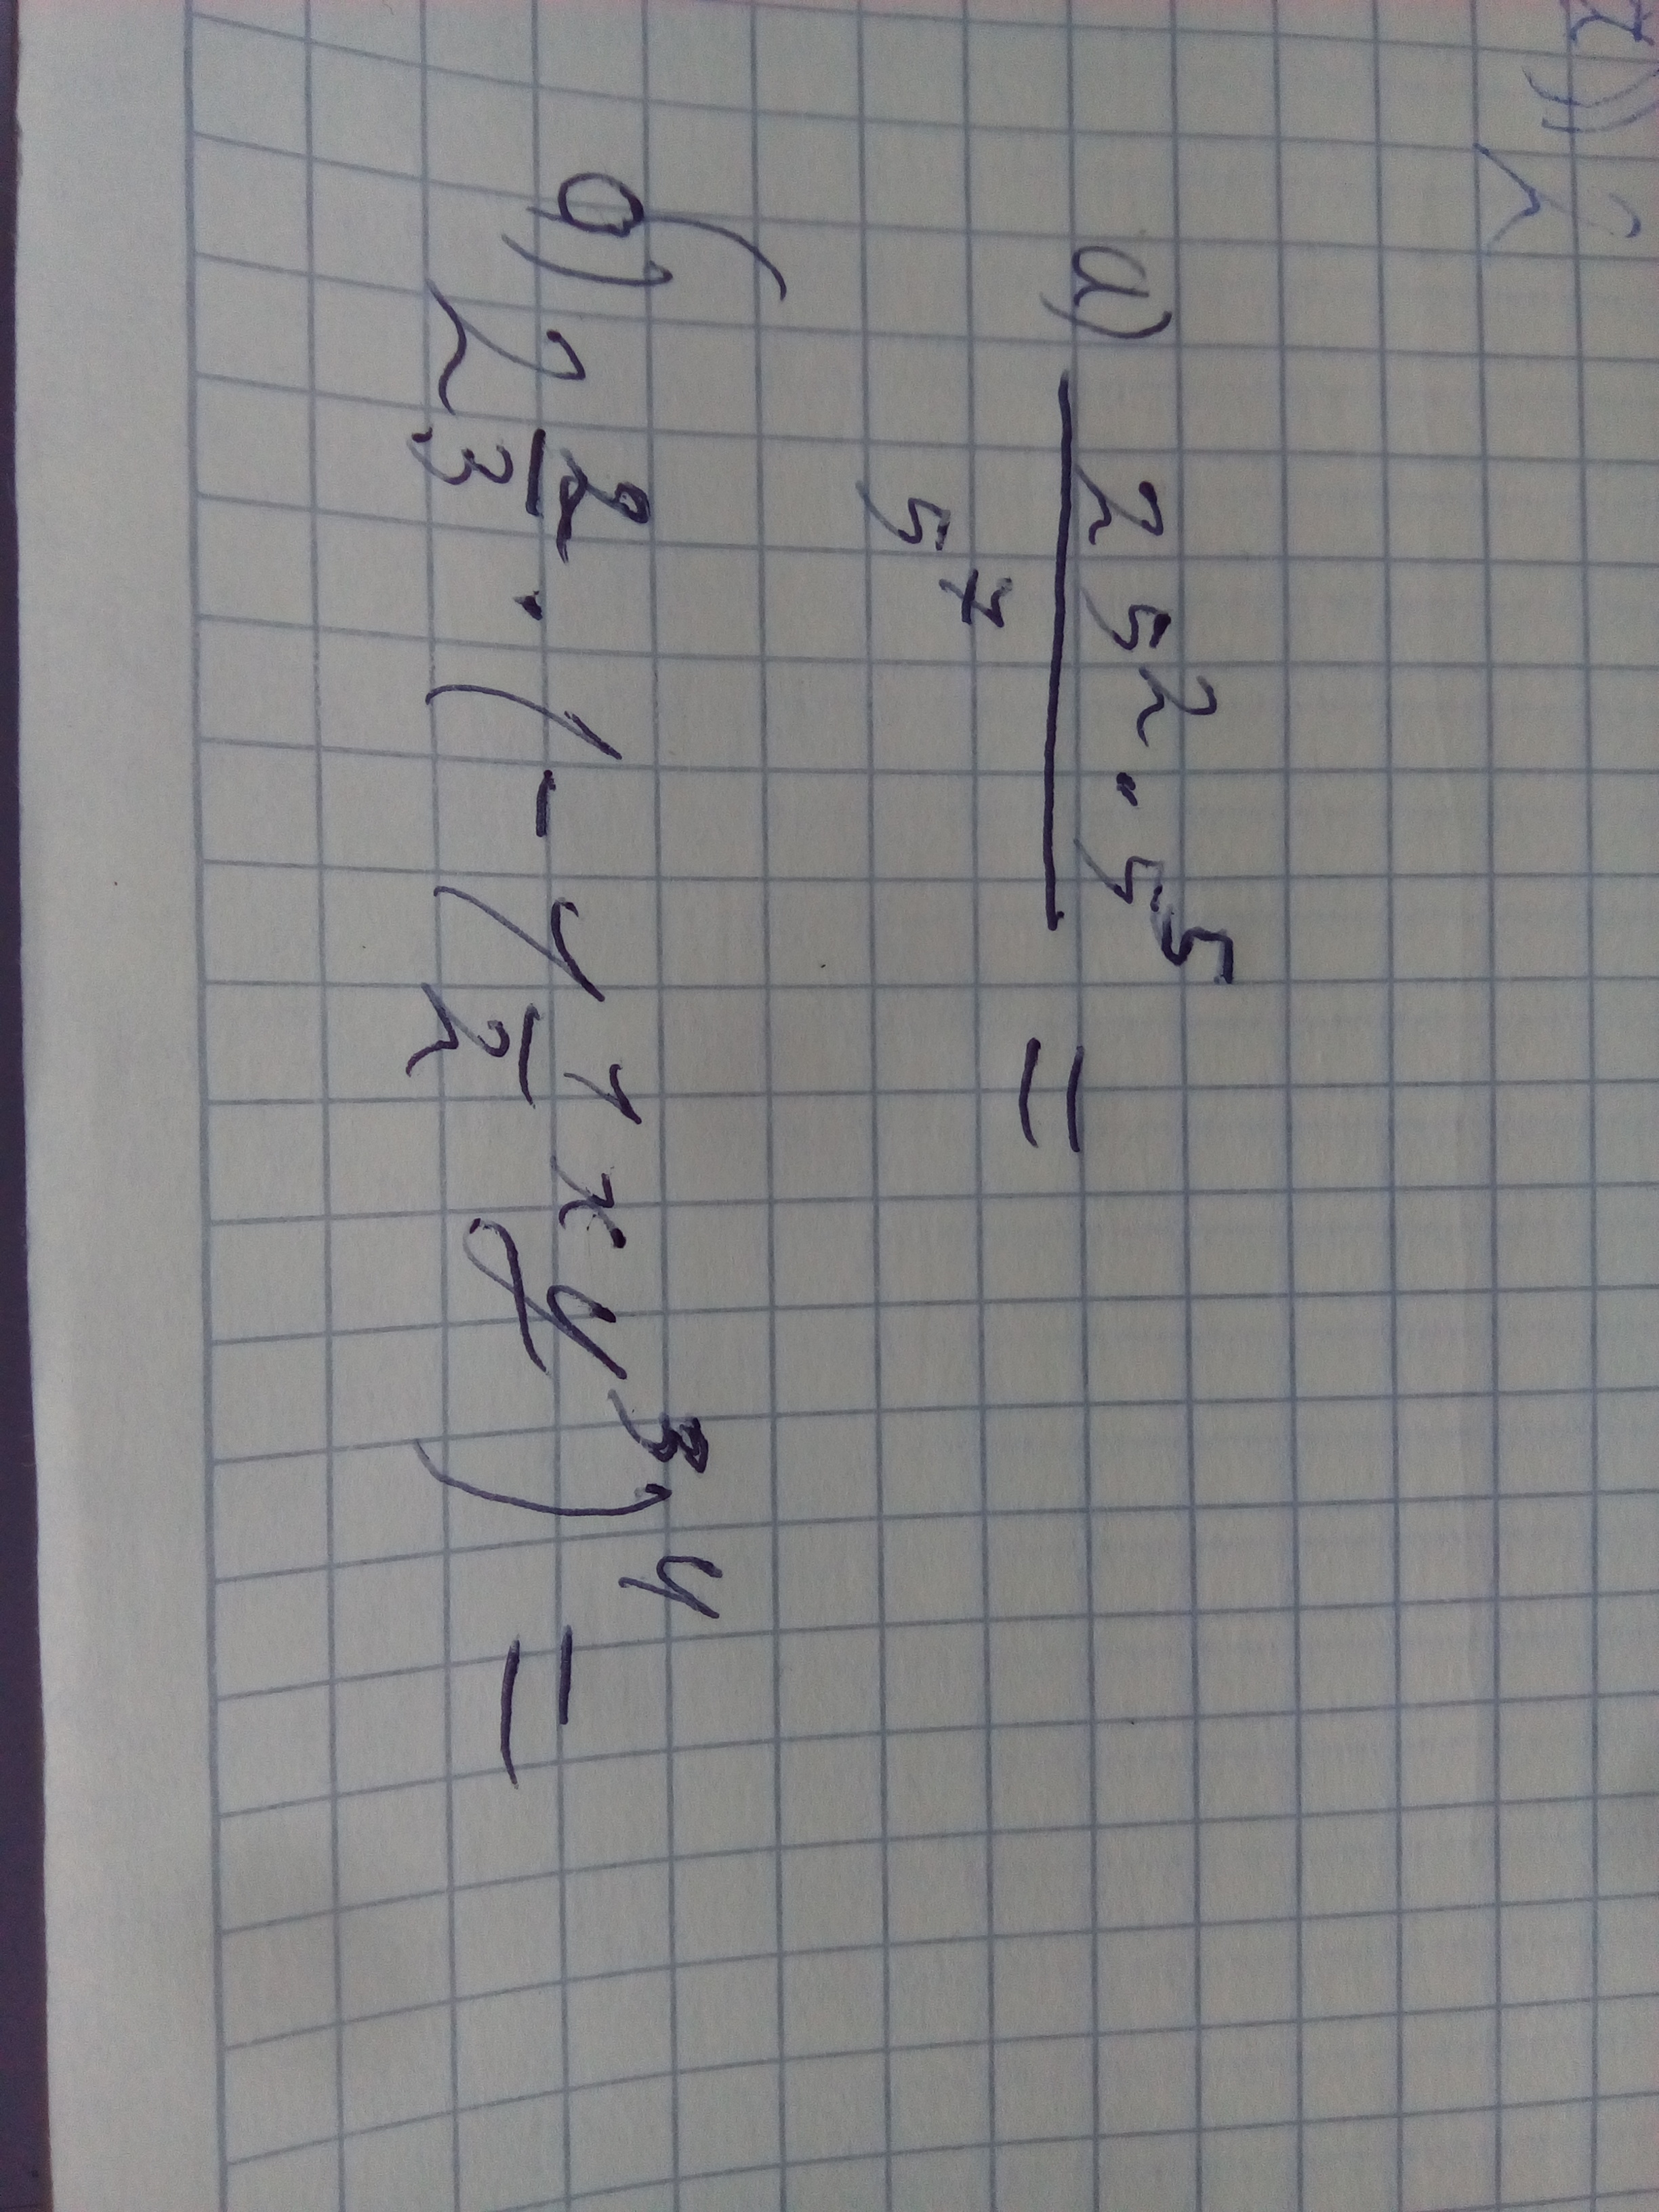 а) 25² · 5⁵ =
5⁷
б) 2 2/3 · (-1 1/2 xy³)⁴ =